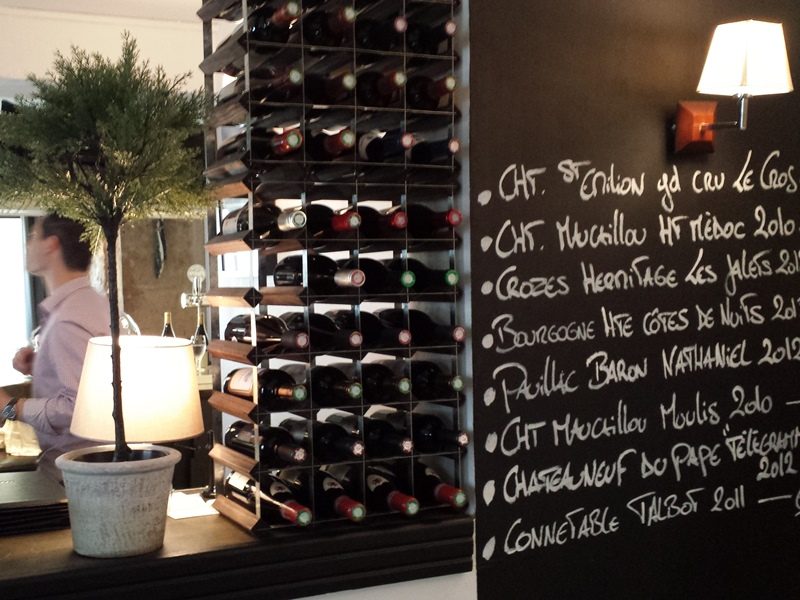 CHT. ST EMILION gd CRU LE CROS
CHT. MAUCAILLOU HT MÉDOC 2010
CROZES HERMITAGE LES JALETS
BOURGOGNE HTE CÔTES DE NUITS
PAUILLAC BARON NATHANIEL 2012
CHT MAUCAILLOU MOULIS 2010 —
CHATEAUNEUF DU PAPE "TÉLEGRAMM
2012
CONNETABLE TALBOT 2011 —